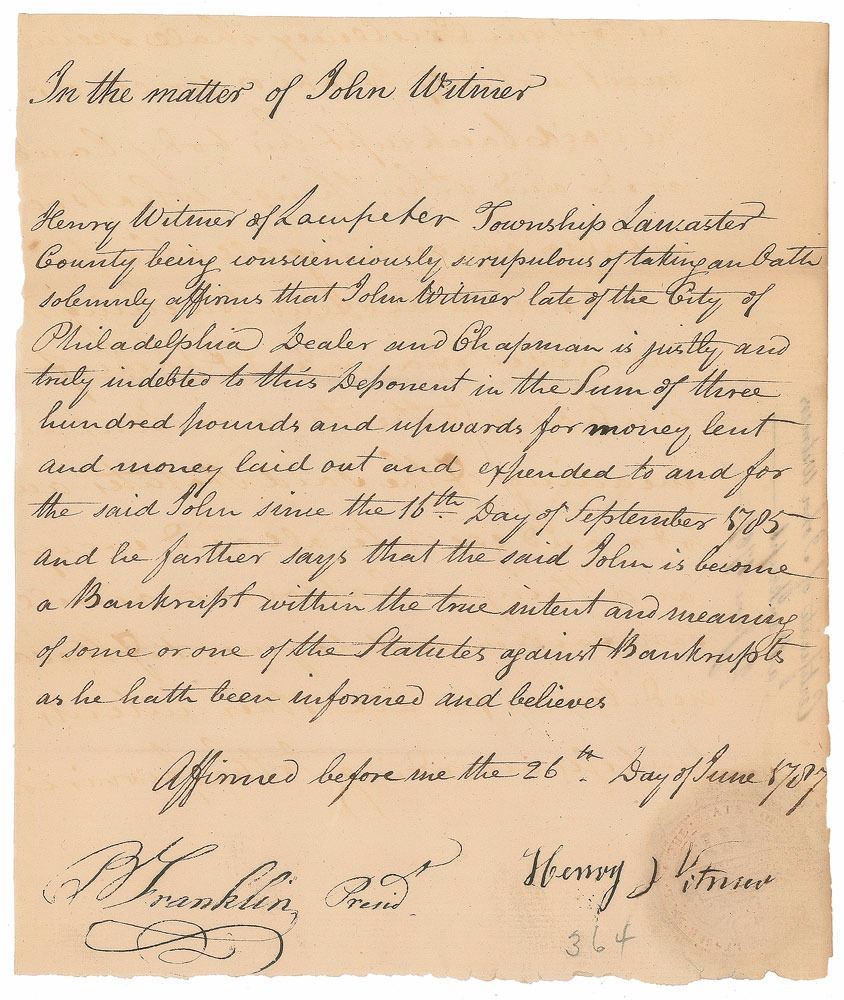 In the matter of John Witmer
Henry Witmer of Lampeter Township Lancaster
County being conscienciously scrupulous of taking an Oath
solemnly affirms that John Witmer late of the City of
Philadelphia Dealer and Chapman is justly and
truly indebted to this Deponent in the Sum of three
hundred pounds and upwards for money lent
and money laid out and expended to and for
the said John since the 16th Day of September 1785
and he farther says that the said John is become
a Bankrupt within the true intent and meaning
of some or one of the Statutes against Bankrupts
as he hath been informed and believes
Affirmed before me the 26th Day of June 1787
B Franklin Presidt
Henry Witmer
364